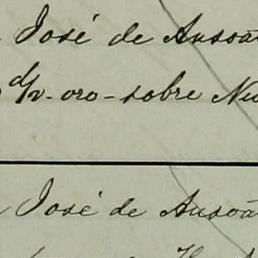 José de Ansoa
d/v - oro - sobre Nu
José de Ansoa